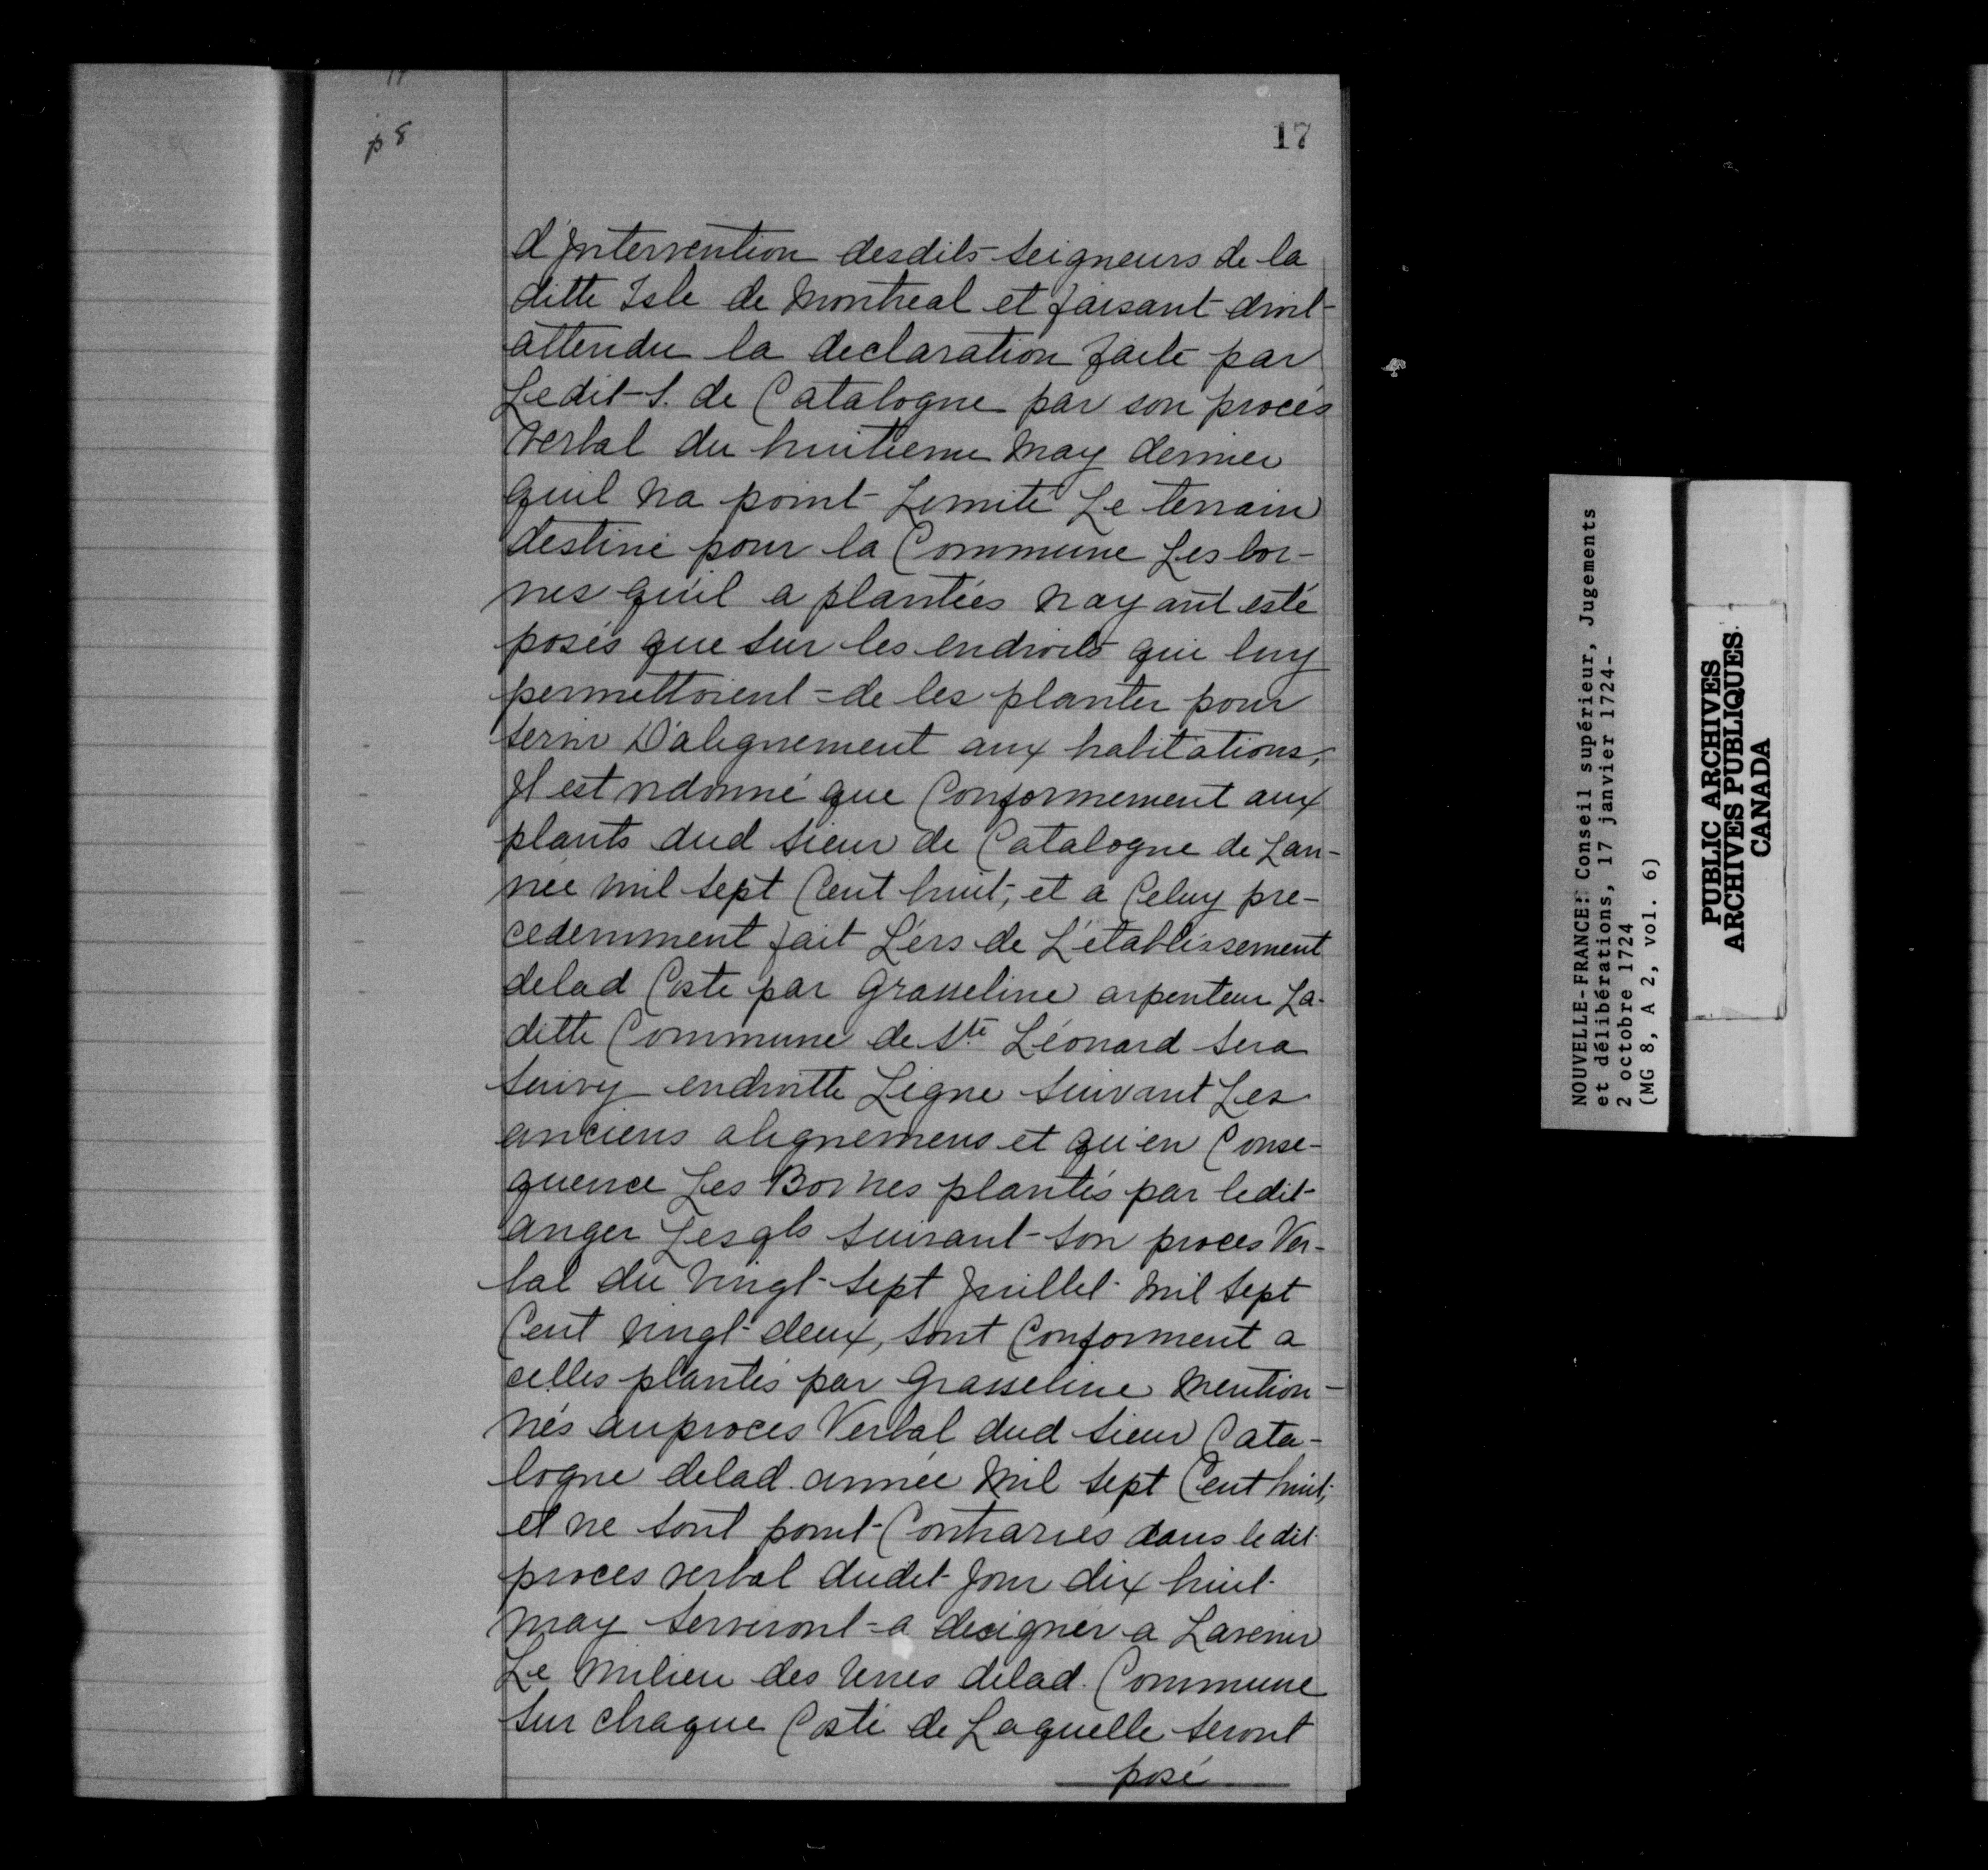 p 8
17
d'Intervention desdits Seigneurs de la
ditte Isle de Montreal et faisant droit
attendu la declaration faite par
Ledit S. de Catalogne par son procés
verbal du huitieme May dernier
quil na point Limité Le terrain
destiné pour la Commune Les bor-
nes qu'il a plantées nayant esté
posés que sur les endroits qui luy
permettoient de les planter pour
servir D'alignement aux habitations,
Il est ordonné que Conformement aux
plants dud sieur de Catalogne de Lan-
née mil sept Cent huit, et a Celuy pre-
cedemment fait Lors de L'établissement
delad Coste par Grasseline arpenteur La-
ditte Commune de Ste Léonard sera
suivy endroitte Ligne suivant Les
anciens alignemens et qu'en Conse-
quence Les Bornes plantés par ledit
anger Lesqls suivant son proces Ver-
bal du vingt-sept Juillet mil sept
Cent vingt-deux, sont Conforment a
celles plantés par Grasseline mention-
nés auproces Verbal dud sieur Cata-
logne delad. année mil sept Cent huit,
et ne sont point Contrariés dans le dit
proces verbal dudit Jour dix huit
may serviront a designer a Lavenir
Le milieu des terres delad. Commune
sur chaque Costé de Laquelle seront
posé
NOUVELLE-FRANCE: Conseil supérieur, Jugements
et délibérations, 17 janvier 1724-
2 octobre 1724
(MG 8, A 2, vol. 6)
PUBLIC ARCHIVES
ARCHIVES PUBLIQUES
CANADA